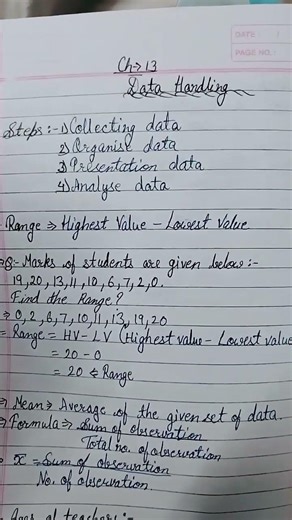 DATE : / /
PAGE NO. :
Ch→13
Data Handling
Steps:- 1) Collecting data
2) Organise data
3) Presentation data
4) Analyse data
Range ⇒ Highest Value - Lowest Value
Q:- Marks of students are given below:-
19, 20, 13, 11, 10, 6, 7, 2, 0.
Find the Range?
⇒ 0, 2, 6, 7, 10, 11, 13, 19, 20
= Range = HV - LV (Highest value - Lowest value
= 20 - 0
= 20 ← Range
⇒ Mean ⇒ Average of the given set of data.
⇒ Formula ⇒ Sum of observation
Total no. of observation
x̄ = Sum of observation
No. of observation.
Ages of teachers:-